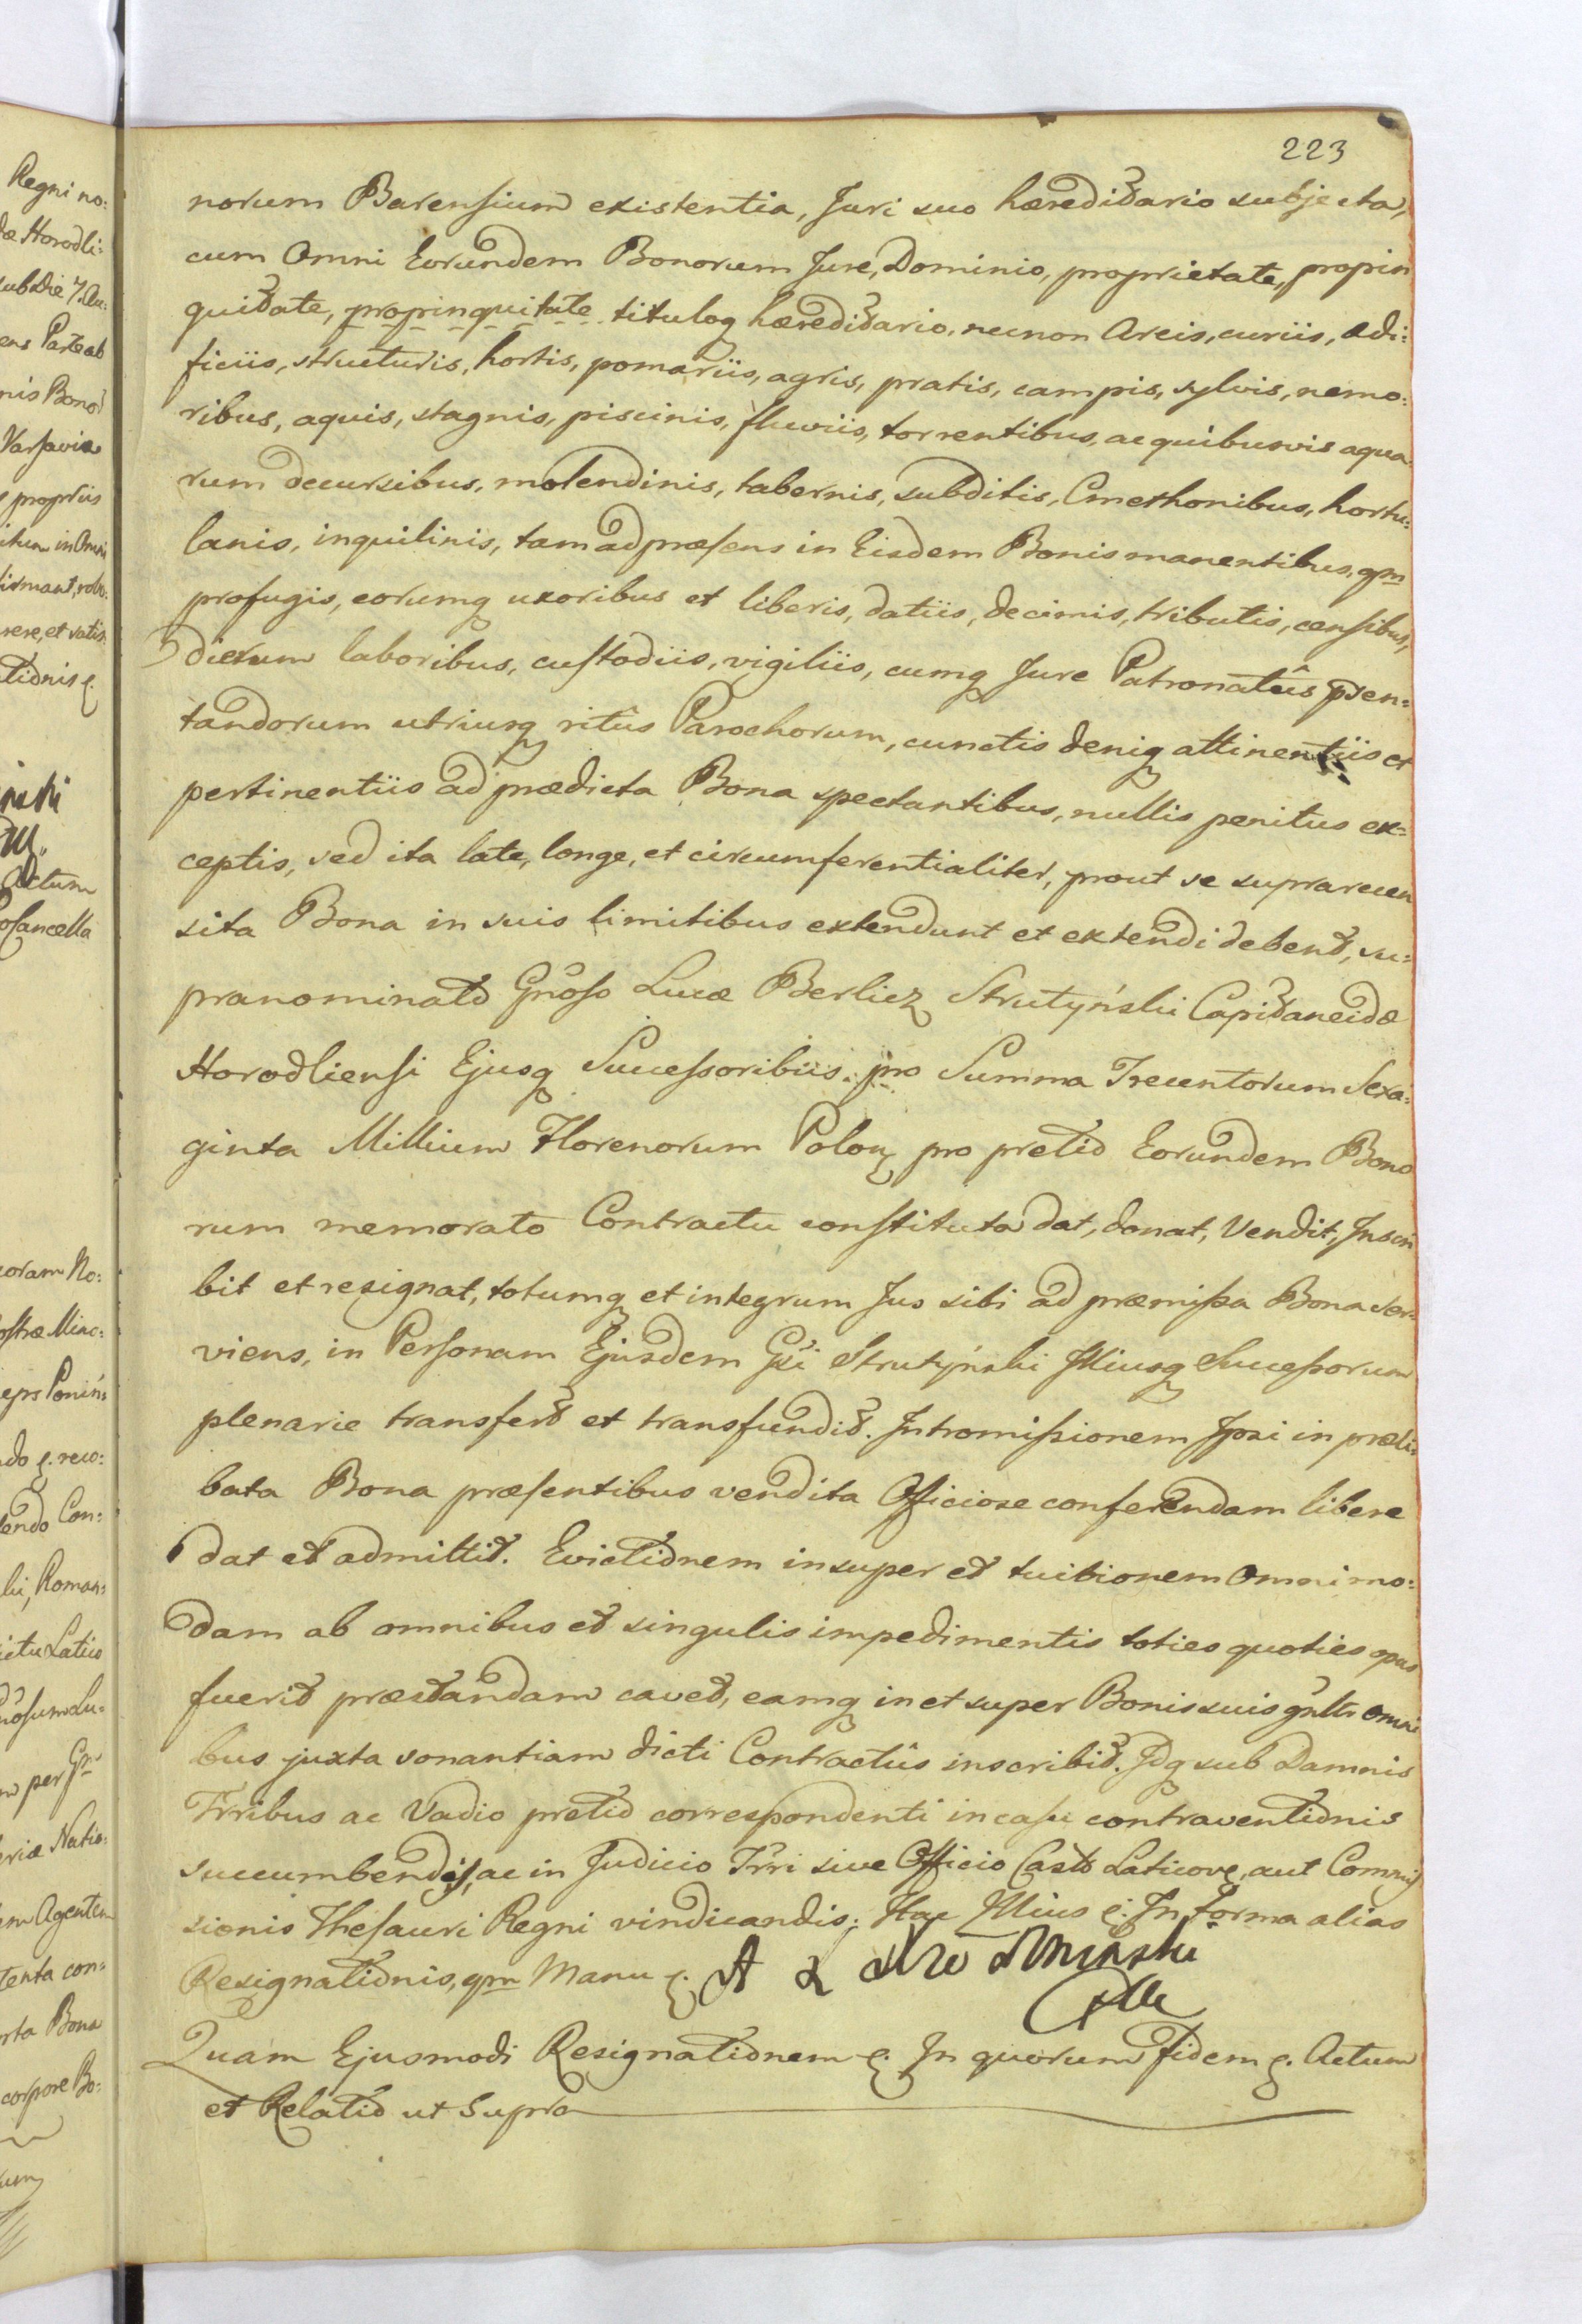 223
norum Barensium existentia, Juri suo hæreditario subjecta,
cum Omni Eorundem Bonorum Jure, Dominio, proprietate, propin
quitate, propinquitate tituloq hæreditario, necnon Arcis, curiis, ædi:
ficiis, structuris, hortis, pomariis, agris, pratis, campis, sylvis, nemo:
ribus, aquis, stagnis, piscinis, fluviis, torrentibus, ac quibusvis aqua
rum decursibus, molendinis, tabernis, subditis, Cmethonibus, hortu:
lanis, inquilinis, tam ad præsens in Eisdem Bonis manentibus, qm
profugis, eorumq uxoribus et liberis, datiis, decimis, tributis, censibus,
dierum laboribus, custodiis, vigiliis, cumq Jure Patronatûs pden:
tandorum utriusq ritûs Parochorum, cunctis deniq attinentiis et
pertinentiis ad prædicta Bona spectantibus, nullis penitus ex:
ceptis, sed ita late, longe, et circumferentialiter, prout se suprarecen
sita Bona in suis limitibus extendunt et extendi debent, su:
pranominato Gnoso Lucæ Berlicz Strutyński Capitaneidæ
Horodliensi Ejusq Successoribus. pro Summa Trecentorum Sexa:
ginta Millium Florenorum Polon pro pretio Eorundem Bono
rum memorato Contractu constituta dat, donat, Vendit, Inscri
bit et resignat, totumq et integrum Jus sibi ad præmissa Bona ser:
viens, in Personam Ejusdem Gsi Strutyński Illiusq Successorum
plenarie transfert et transfundit. Intromissionem Ipsi in præli:
bata Bona præsentibus vendita Officiose conferendam libere
dat et admittit. Evictionem insuper et tuitionem Omnimo:
dam ab omnibus et singulis impedimentis toties quoties opus
fuerit præstandam cavet, eamq in et super Bonis suis gnltr omni
bus juxta sonantiam dicti Contractûs inscribit. Idq sub Damnis
Trribus ac Vadio pretio correspondenti in casu contraventionis
succumbendis, ac in Judicio Trri sive Officio Casto Laticov, aut Commis
sionis Thesauri Regni vindicandis. Hac Illius e. In Forma alias
Resignationis, qm Manu e.
Quam Ejusmodi Resignationem e. In quorum Fidem e. Actum
et Relatio ut Supra